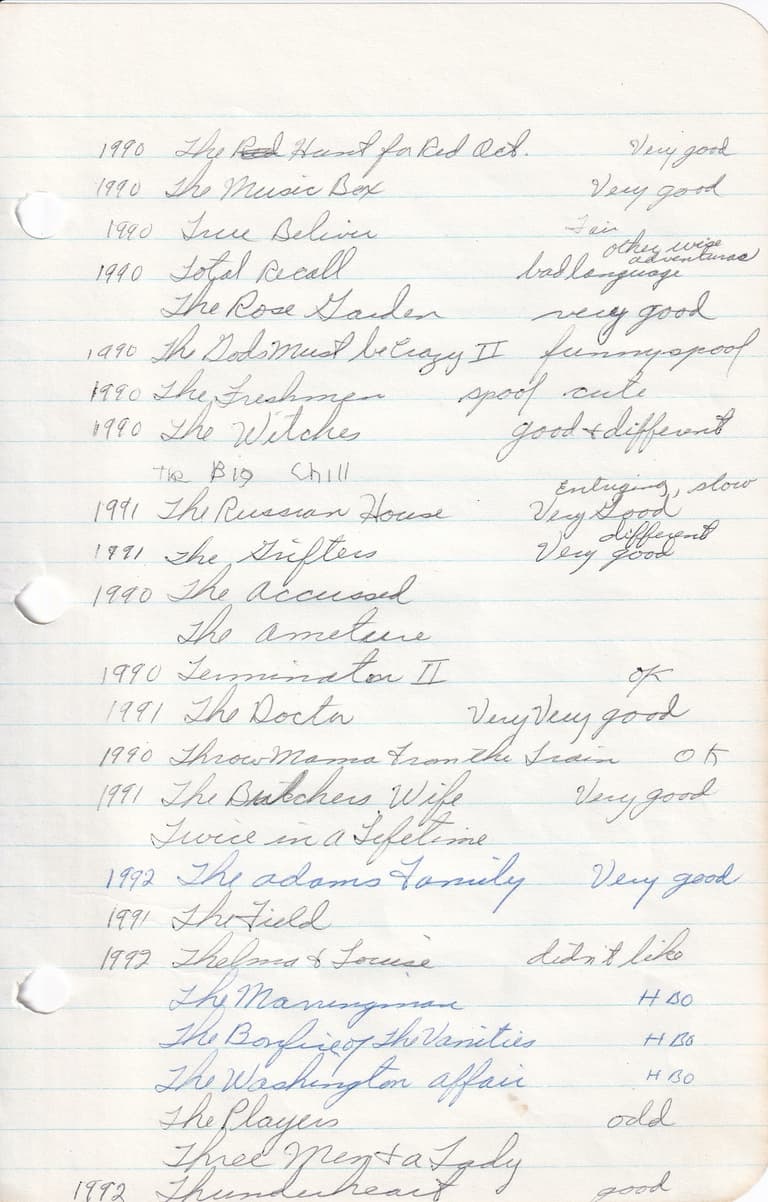 1990 The Red Hunt for Red Oct. Very good
1990 The Music Box Very good
1990 True Beliver Fair
1990 Total Recall bad language other wise adventuras
The Rose Garden very good
1990 The Gods Must be Crazy II funny spoof
1990 The Freshmen spoof cute
1990 The Witches good & different
The Big Chill
1991 The Russian House Entriging, slow Very Good
1991 The Grifters different Very good
1990 The Accussed
The Ameture
1990 Terminator II OK
1991 The Doctor Very Very good
1990 Throw Mama From the Train OK
1991 The Butchers Wife Very good
Twice in a Lifetime
1992 The Adams Family Very good
1991 The Field
1992 Thelma & Louise didn't like
The Marringman HBO
The Bonfire of The Vanities HBO
The Washington affair HBO
The Players odd
Three Men & a Lady
1992 Thunderheart good